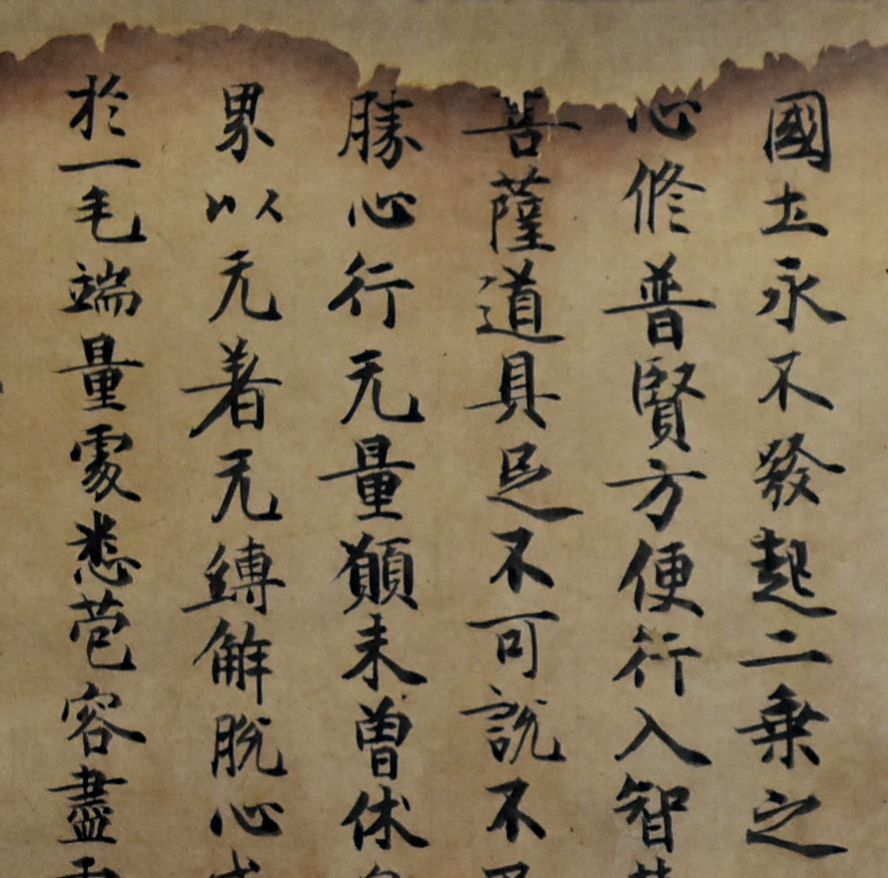 國土永不發起二乗之
心修普賢方便行入智
菩薩道具足不可說不
勝心行无量願未曽休
累以无著无縛解脫心
於一毛端量處悉苞容盡